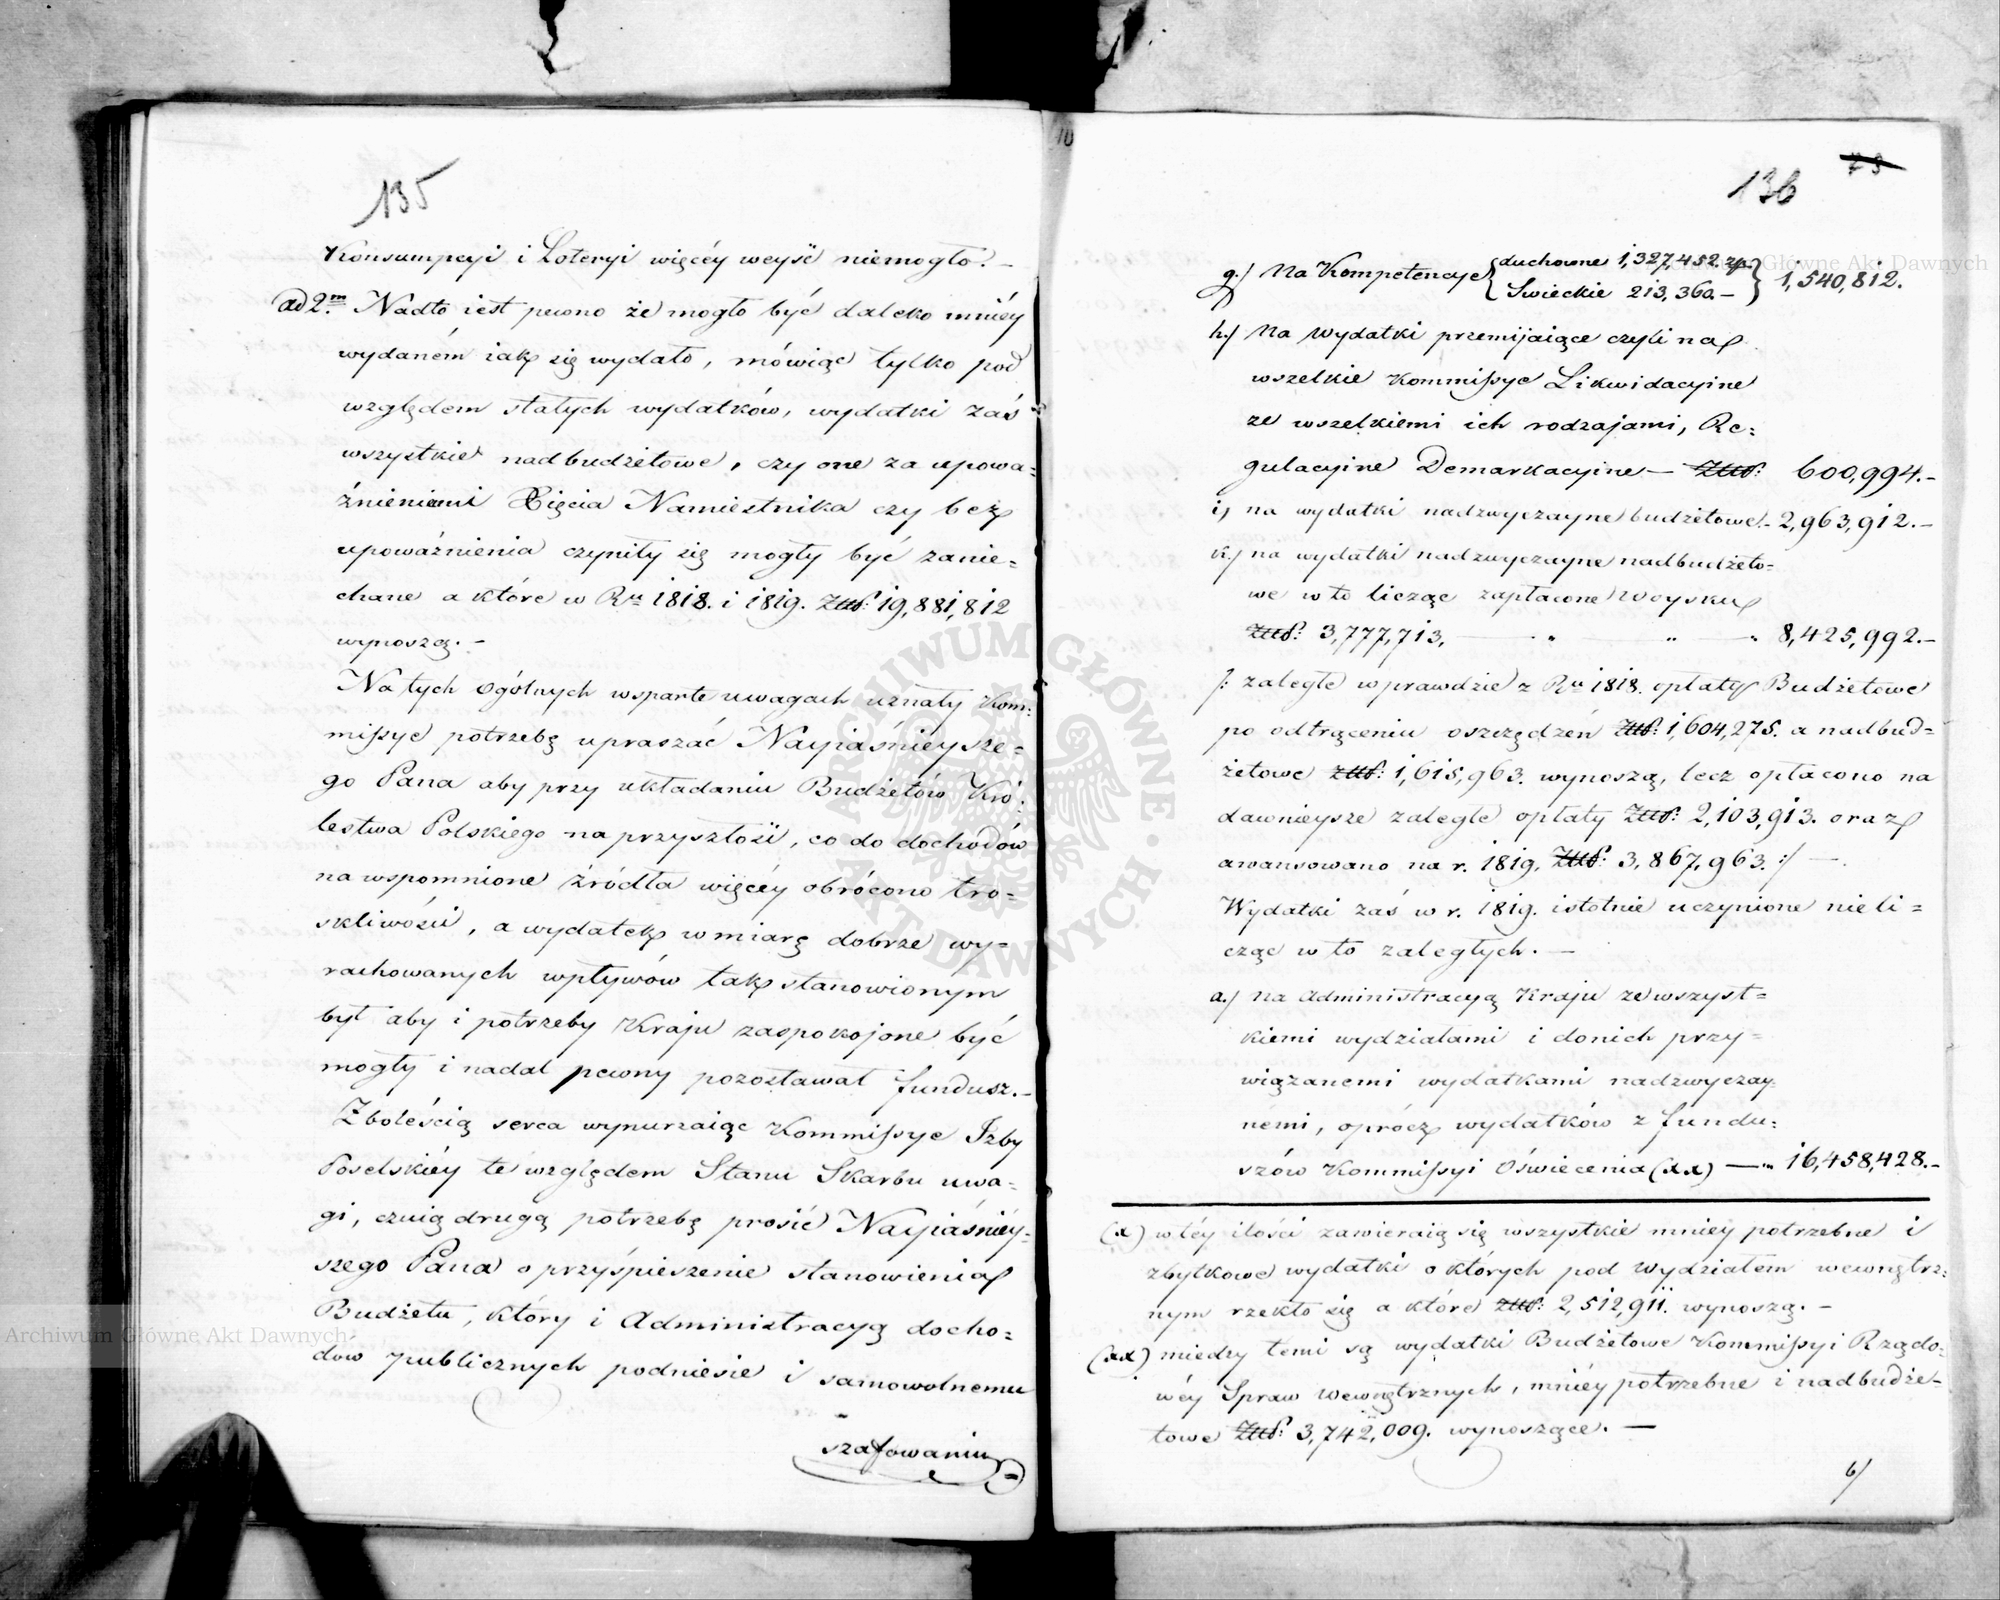 135
Konsumpcyi i Loteryi więcéy weyść niemogło. –
ad 2m. Nadto iest pewno że mogło być daleko mniéy
wydaném iak się wydało, mówiąc tylko pod
względem stałych wydatków, wydatki zaś
wszystkie nadbudżetowe, czy one za upowa=
żnieniami Xięcia Namiestnika czy bez
upoważnienia czyniły się mogły być zanie=
chane a które w Ru 1818. i 1819. Złł: 19,881,812
wynoszą. –
Na tych ogólnych wsparte uwagach uznały Kom=
missye potrzebę upraszać Nayiaśnieysze=
go Pana aby przy układaniu Budżetów Kró=
lestwa Polskiego na przyszłość, co do dochodów
na wspomnione źródła więcéy obrócono tro=
skliwości, a wydatek w miarę dobrze wy=
rachowanych wpływów tak stanowionym
był aby i potrzeby Kraju zaspokojone być
mogły i nadal pewny pozostawał fundusz. –
Z boleścią serca wynurzaiąc Kommissye Izby
Poselskiéy te względem Stanu Skarbu uwa=
gi, czuią drugą potrzebę prosić Nayiaśniéy=
szego Pana o przyśpieszenie stanowienia
Budżetu, który i Administracyą docho=
dow publicznych podniesie i samowolnemu
szafowaniu =
73
136
g.) Na Kompetencye { duchowne 1,327,452. zp. } 1,540,812.
Swieckie 213,360. –
h.) Na Wydatki przemijaiące czyli na
wszelkie Kommissye Likwidacyine
ze wszelkiemi ich rodzajami, Re=
gulacyine Demarkacyine – Złł: 600,994. –
i) na wydatki nadzwyczayne budżetowe – 2,963,912. –
k.) na wydatki nadzwyczayne nadbudżeto=
we w to licząc zapłacone Woysku
Złł: 3,777,713, — „ — „ — „ 8,425,992. –
/: zaległe wprawdzie z Ru 1818. opłaty Budżetowe
po odtrąceniu oszczędzeń Złł: 1,604,275. a nadbud=
żetowe Złł: 1,615,963. wynoszą, lecz opłacono na
dawnieysze zaległe opłaty Złł: 2,103,913. oraz
awansowano na r. 1819. Złł: 3,867,963. :/ —
Wydatki zaś w r. 1819. istotnie uczynione nieli=
cząc w to zaległych. —
a.) na Administracyą Kraju ze wszyst=
kiemi wydziałami i do nich przy=
wiązanemi wydatkami nadzwyczay=
nemi, oprócz wydatków z fundu=
szów Kommissyi Oświecenia (xx) — „ 16,458,428. –
(x) w téy ilości zawieraią się wszystkie mniey potrzebne i
zbytkowe wydatki o których pod Wydziałem wewnętrz=
nym rzekło się a które Złł: 2,512,911. wynoszą. –
(xx) miedzy temi są wydatki Budżetowe Kommissyi Rządo=
wéy Spraw Wewnętrznych, mniéy potrzebne i nadbudże=
towe Złł: 3,742,009. wynoszące. —
b)
ARCHIWUM GŁÓWNE AKT DAWNYCH
Archiwum Główne Akt Dawnych
Archiwum Główne Akt Dawnych